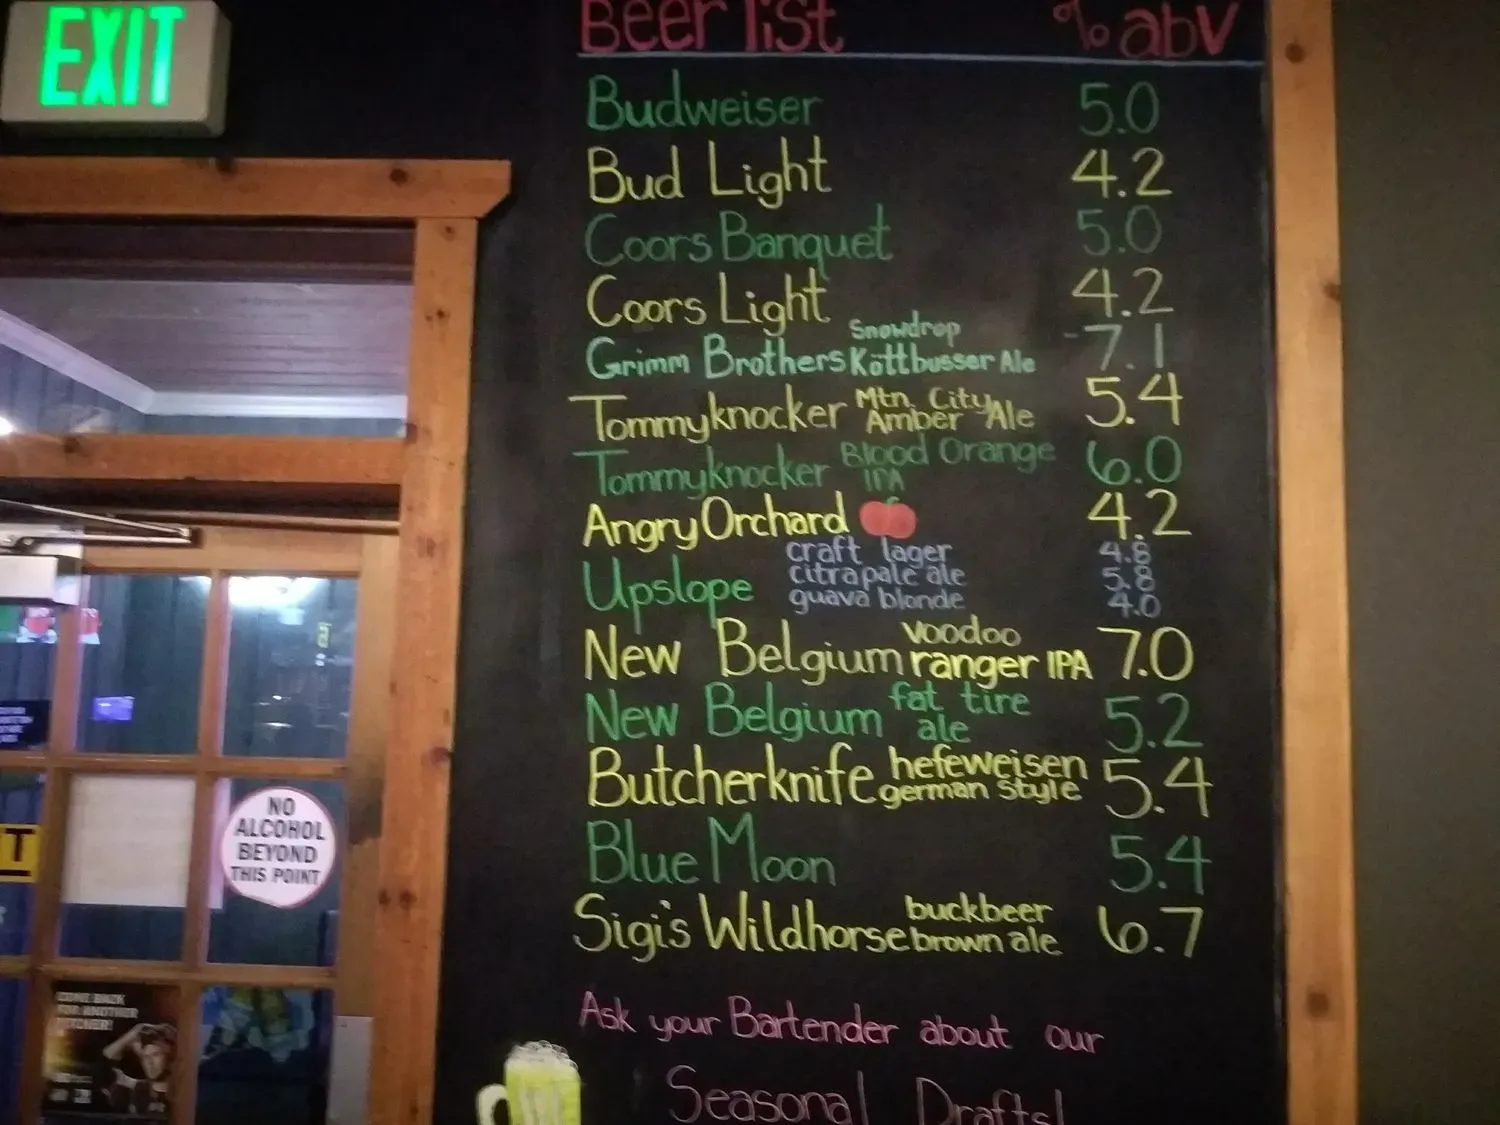 EXIT
Beer list % abv
Budweiser 5.0
Bud Light 4.2
Coors Banquet 5.0
Coors Light 4.2
Grimm Brothers Snowdrop Köttbusser Ale 7.1
Tommyknocker Mtn. City Amber Ale 5.4
Tommyknocker Blood Orange IPA 6.0
Angry Orchard 4.2
Upslope
craft lager 4.8
citra pale ale 5.8
guava blonde 4.0
New Belgium voodoo ranger IPA 7.0
New Belgium fat tire ale 5.2
Butcherknife hefeweisen german style 5.4
Blue Moon 5.4
Sigi's Wildhorse buckbeer brown ale 6.7
Ask your Bartender about our
Seasonal Drafts!
NO
ALCOHOL
BEYOND
THIS POINT
COME BACK
FOR ANOTHER